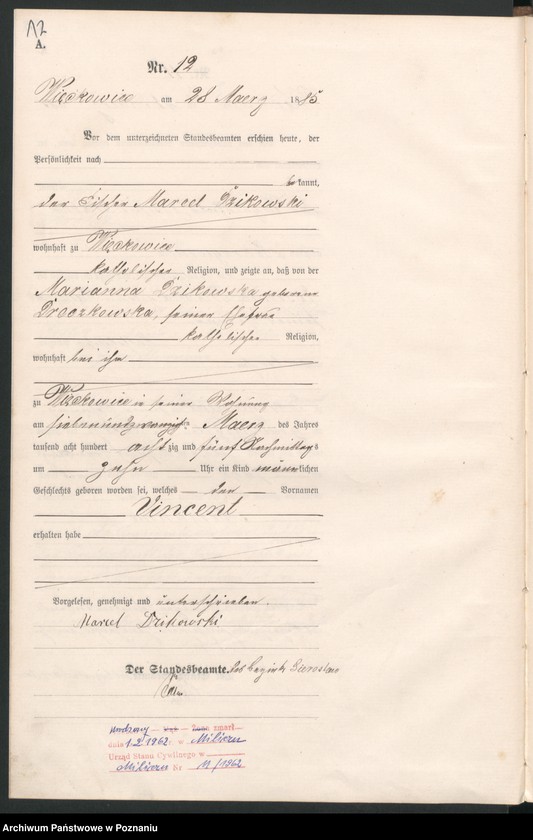 12
A.
Nr. 12
Więckowice am 28 Maerz 1885
Vor dem unterzeichneten Standesbeamten erschien heute, der
Persönlichkeit nach
bekannt,
der Fischer Marcel Dzikowski
wohnhaft zu Więckowice
katholischer Religion, und zeigte an, daß von der
Marianna Dzikowska geborene
Droczkowska, seiner Ehefrau
katholischer Religion,
wohnhaft bei ihm
zu Więckowice in seiner Wohnung
am siebenundzwanzigsten Maerz des Jahres
tausend acht hundert achtzig und fünf Nachmittags
um zehn Uhr ein Kind männlichen
Geschlechts geboren worden sei, welches den Vornamen
Vincent
erhalten habe
Vorgelesen, genehmigt und unterschrieben.
Marcel Dzikowski
Der Standesbeamte. des Bezirks
Urodzony Żona zmarł
dnia 1.2 1962 w Miliczu
Urząd Stanu Cywilnego w
Miliczu Nr 11/1962
Archiwum Państwowe w Poznaniu